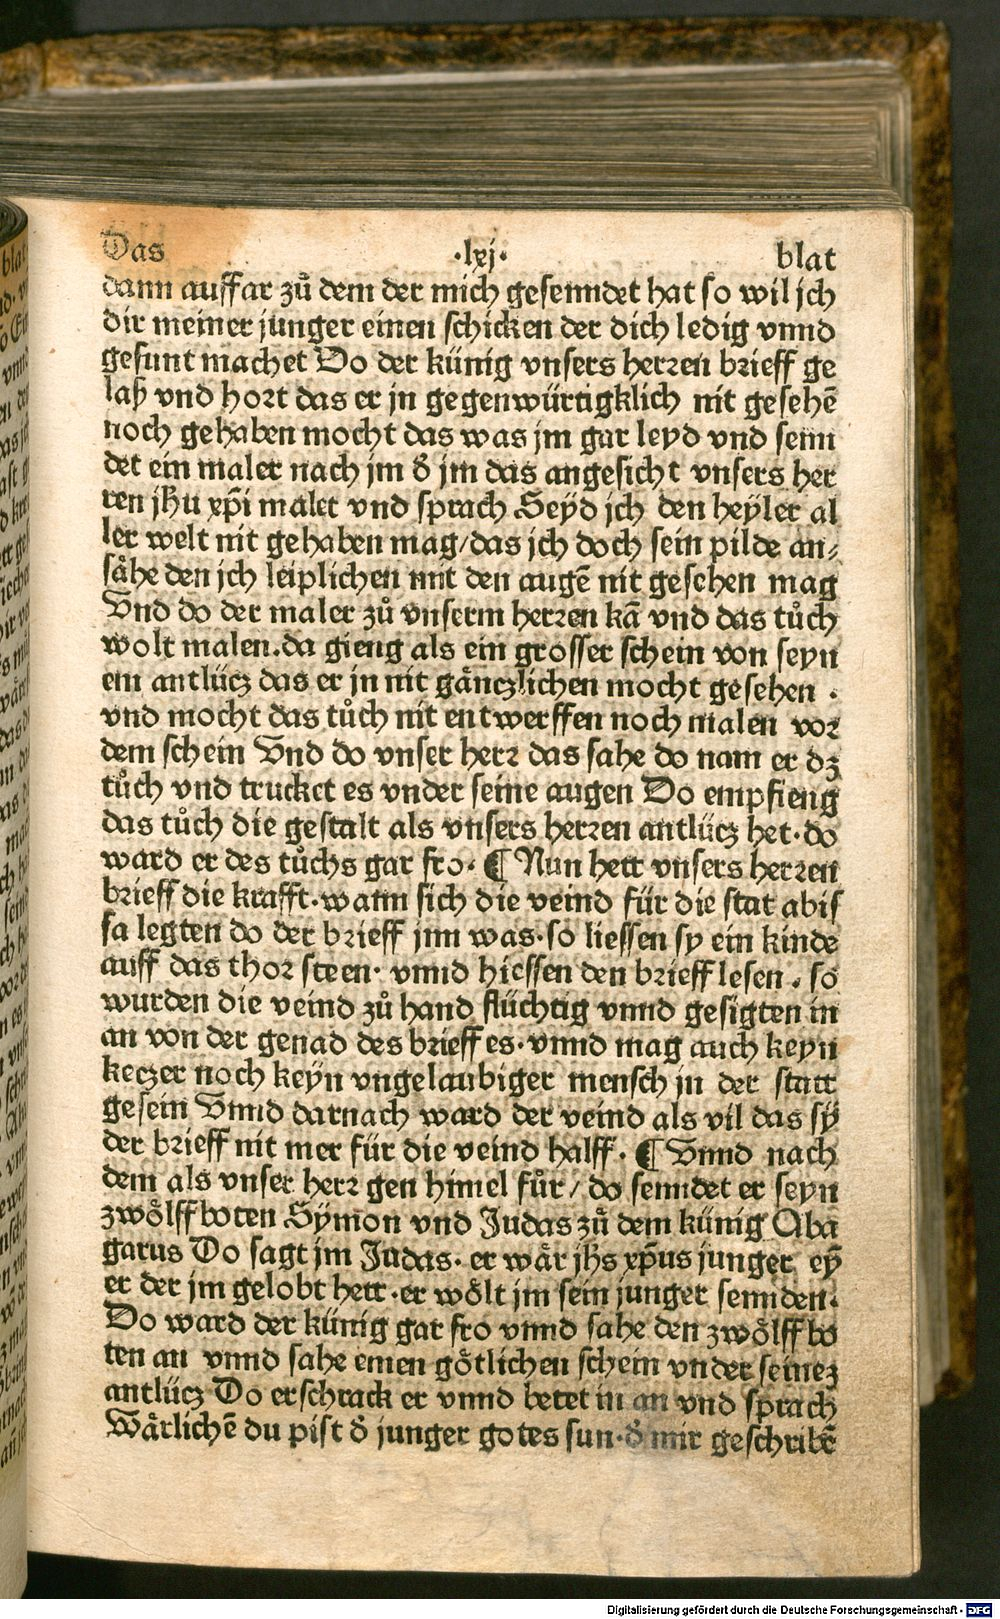 Das ·lxj· blat
dann auffar zů dem der mich gesenndet hat so wil jch
dir meiner junger einen schicken der dich ledig vnnd
gesunt machet Do der künig vnsers herren brieff ge
laß vnd hort das er jn gegenwürtigklich nit gesehē
noch gehaben mocht das was jm gar leyd vnd senn
det ein maler nach jm d̄ jm das angesicht vnsers her
ren jhu xp̄i malet vnd sprach Seyd jch den heyler al
ler welt nit gehaben mag/das jch doch sein pilde an⸗
såhe den jch leiplichen mit den augē nit gesehen mag
Vnd do der maler zů vnserm herren kā vnd das tůch
wolt malen.da gieng als ein grosser schein von seyn
em antlücz das er jn nit gånczlichen mocht gesehen .
vnd mocht das tůch nit entwerffen noch malen vor
dem schein Vnd do vnser herr das sahe do nam er dz
tůch vnd trucket es vnder seine augen Do empfieng
das tůch die gestalt als vnsers herren antlücz het·do
ward er des tůchs gar fro· ¶ Nun hett vnsers herren
brieff die krafft·wann sich die veind für die stat abis
sa legten do der brieff jnn was·so liessen sy ein kinde
auff das thor steen· vnnd hiessen den brieff lesen . so
wurden die veind zů hand flüchtig vnnd gesigten in
an von der genad des brieff es·vnnd mag auch keyn
keczer noch keyn vngelaubiger mensch jn der statt
gesein Vnnd darnach ward der veind als vil das sÿ
der brieff nit mer für die veind halff· ¶ Vnnd nach
dem als vnser herr gen himel fůr/ do senndet er seyn
zwőlffboten Sÿmon vnd Judas zů dem künig Aba
garus Do sagt jm Judas· er wår jhs xp̄us junger eÿ
er der jm gelobt hett·er wőlt jm sein junger sennden.
Do ward der künig gar fro vnnd sahe den zwőlff bo
ten an vnnd sahe einen gőtlichen schein vnder seinez
antlücz Do erschrack er vnnd betet in an vnd sprach
Wårlichē du pist d̄ junger gotes sun·d̄ mir geschribē
Digitalisierung gefördert durch die Deutsche Forschungsgemeinschaft · DFG